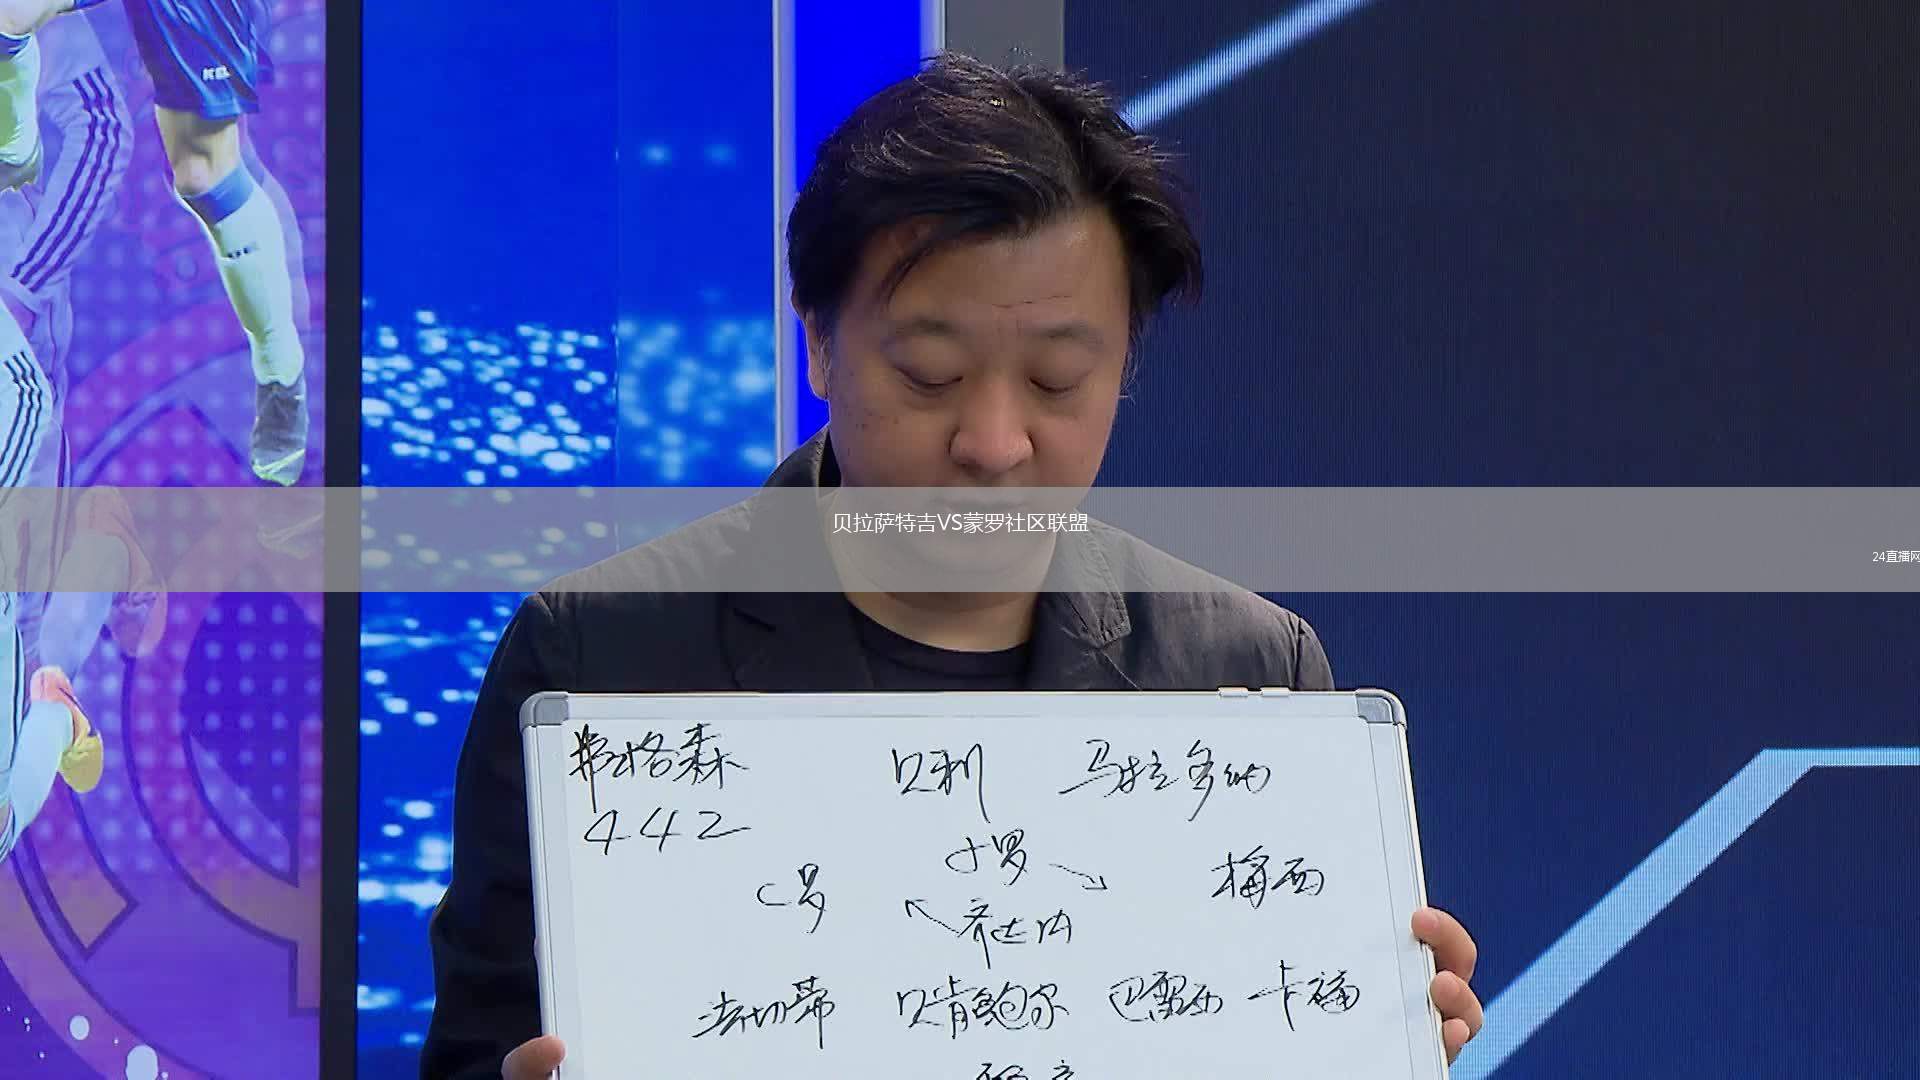 贝拉萨特吉VS蒙罗社区联盟
24直播网
弗格森 贝利 马拉多纳
442
小罗
C罗 梅西
齐达内
法切蒂 贝肯鲍尔 巴雷西 卡福